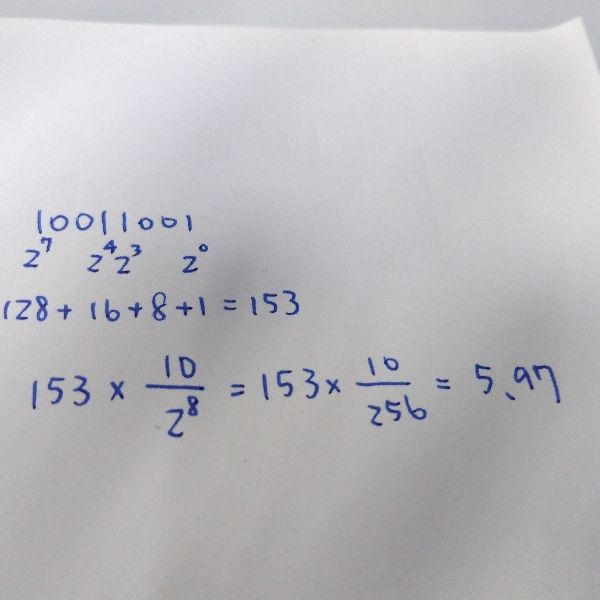 10011001
2^7 2^4 2^3 2^0
128 + 16 + 8 + 1 = 153
153 × 10/2^8 = 153 × 10/256 = 5.97